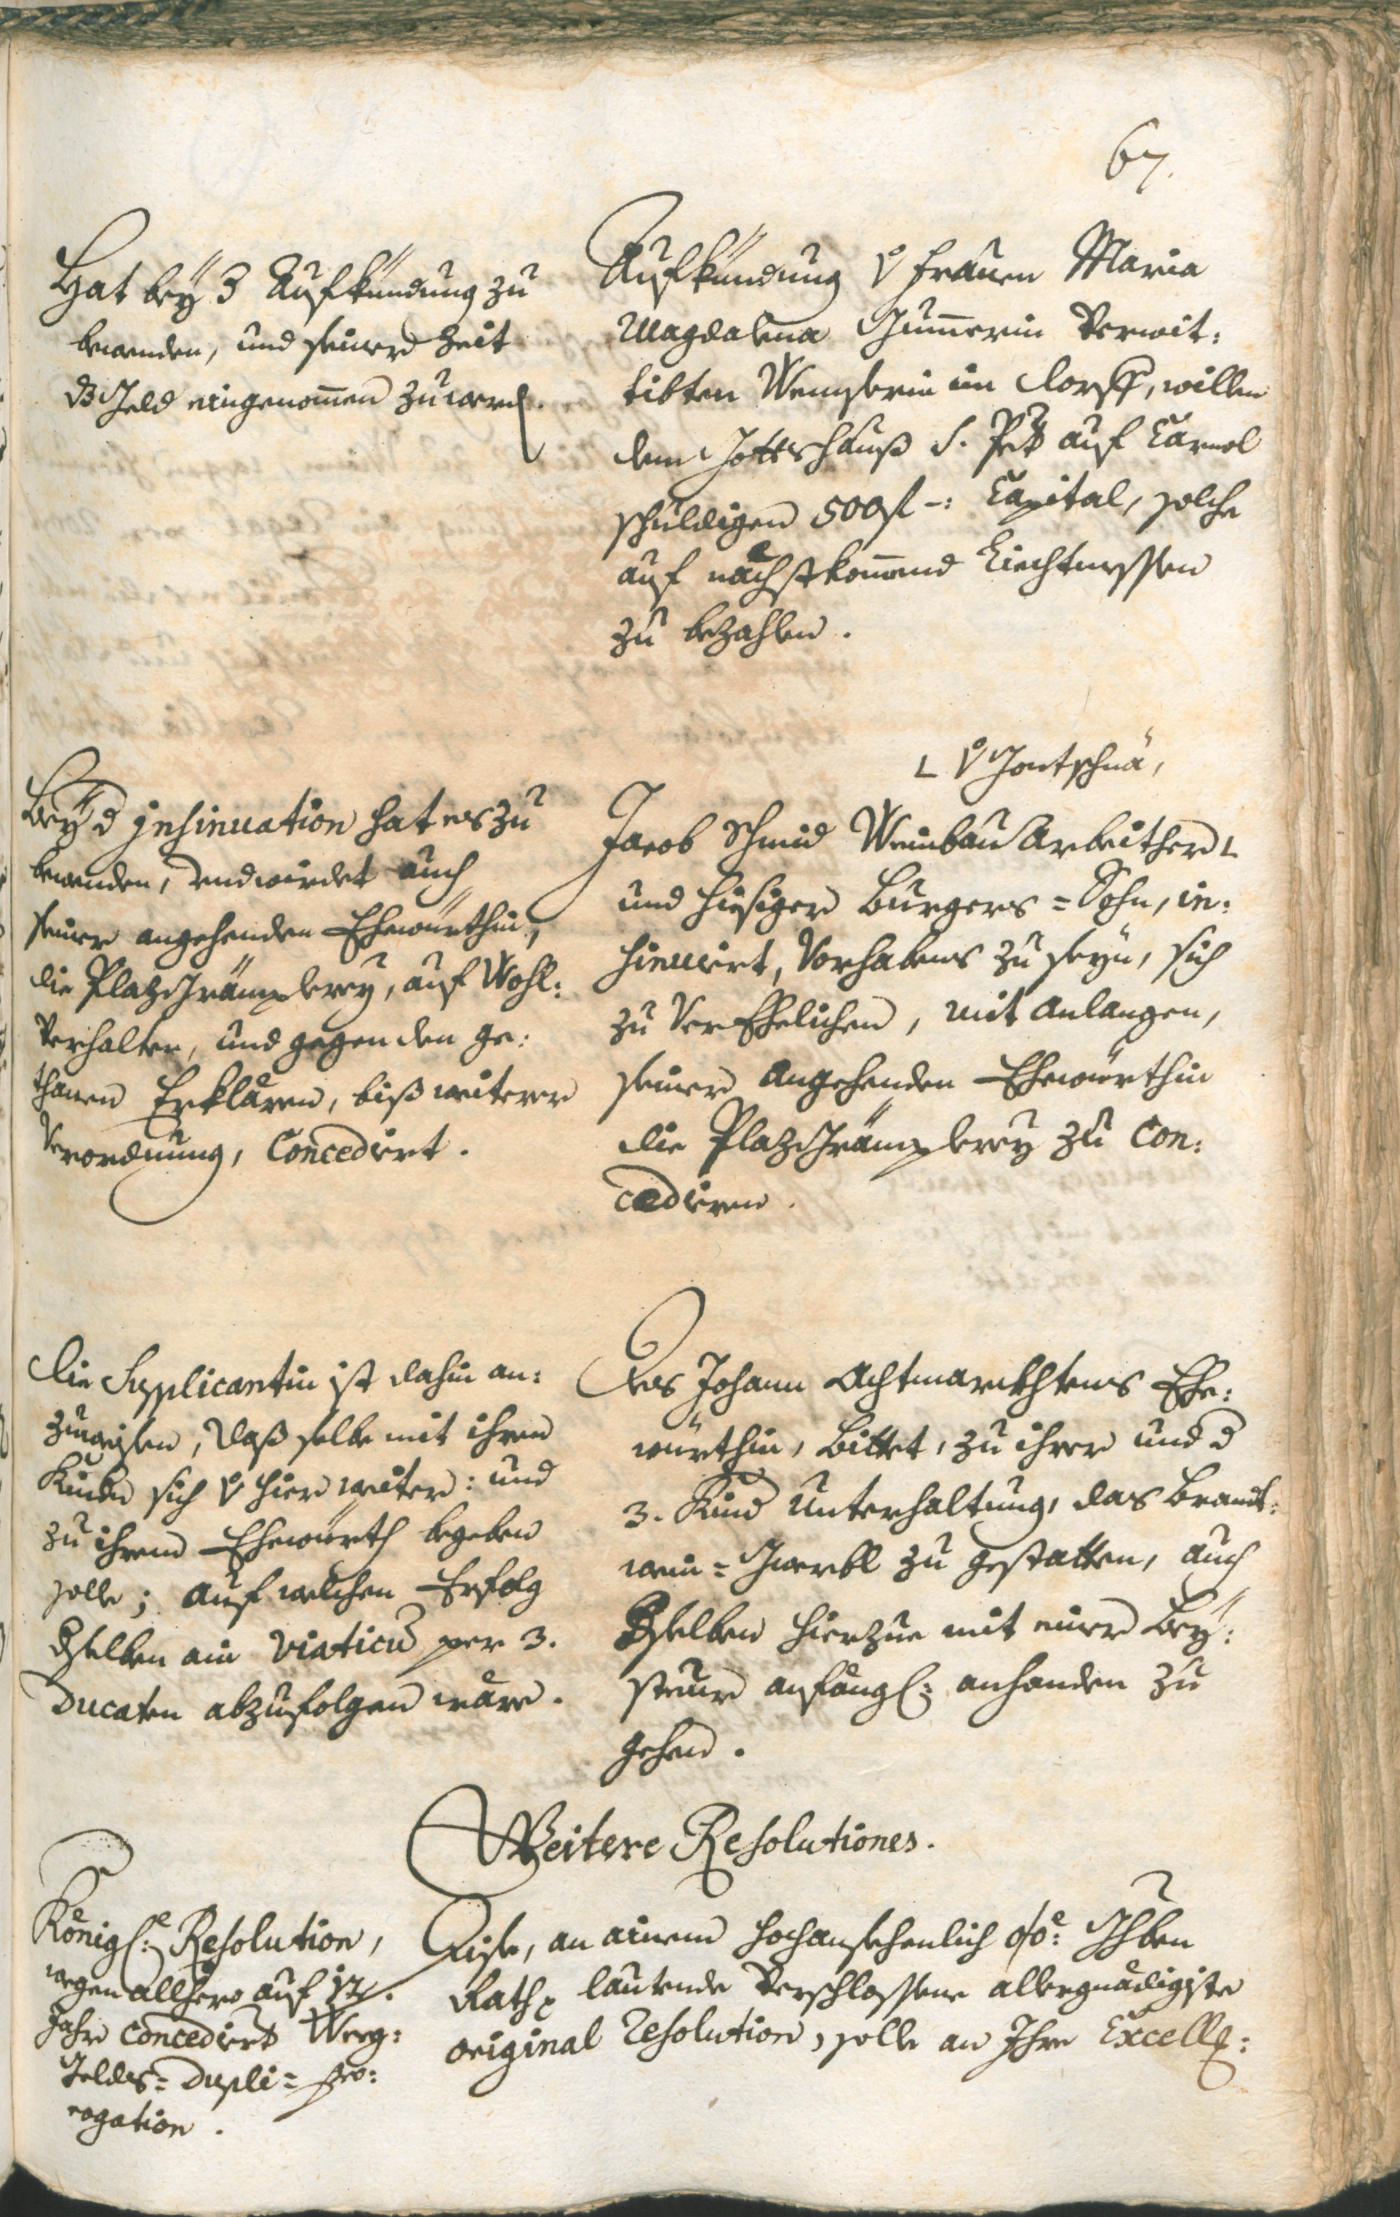 67.
Hat beÿ 3 Aufkündung zu
bewenden, und seiner Zeit
dz Geld eingenom̅en zu werd.
Aufkündung v frauen Maria
Magdalena Gum̅erin Verwit:
tibten Wenserin im dorff, willen
dem Gottshauß S. Pet auf Carnol
schuldigen 500 fl -: Capital, solche
auf nächstkom̅end Liechtmessen
zu bezahlen.
Beÿ d jnsinuation hat es zu
bewenden, und wirdet auch
seiner angehenden Ehewürthin,
die Plaz Grämplerey, auf Wohl:
Verhalten, und gegen den ge:
thanen Erklären, biß weiterer
Verordnung, Concedirt.
L v Gontschnä,
Jacob Schmid Weinbau Arbeither L
und hiesiger Burgers = Sohn, in:
sinuirt, Vorhabens zu seyn, sich
zu Ver Ehelichen, mit anlangen,
seiner angehenden Ehewürthin
die Plaz Grämplerey zu Con:
cediren.
Die Supplicantin ist dahin an:
zuweisen, daß selbe mit ihren
Kindn sich v hier weiter: und
zu ihrem Ehewürth begeben
solle; auf welchen Erfolg
dselben ain viaticu̅ per 3.
Ducaten abzufolgen wäre.
Des Johann Achtmarckhtens Ehe:
würthin, bittet, zu ihrer und d
3. Kind Unterhaltung, das brandt:
wein = Gwerbl zu gestatten, auch
dselben hierzue mit einer beÿ:
steur anfängl: anhanden zu
gehen.
Weitere Resolutiones.
Königl:e Resolution,
wegen allhero auf 12.
Jahr concedirt Weeg:
Geldts = Dupli = pro:
rogation.
Dise, an ainem hochansehenlich
Rath lautende Verschlossene allergnädigiste
original resolution, solle an Ihre Excell: